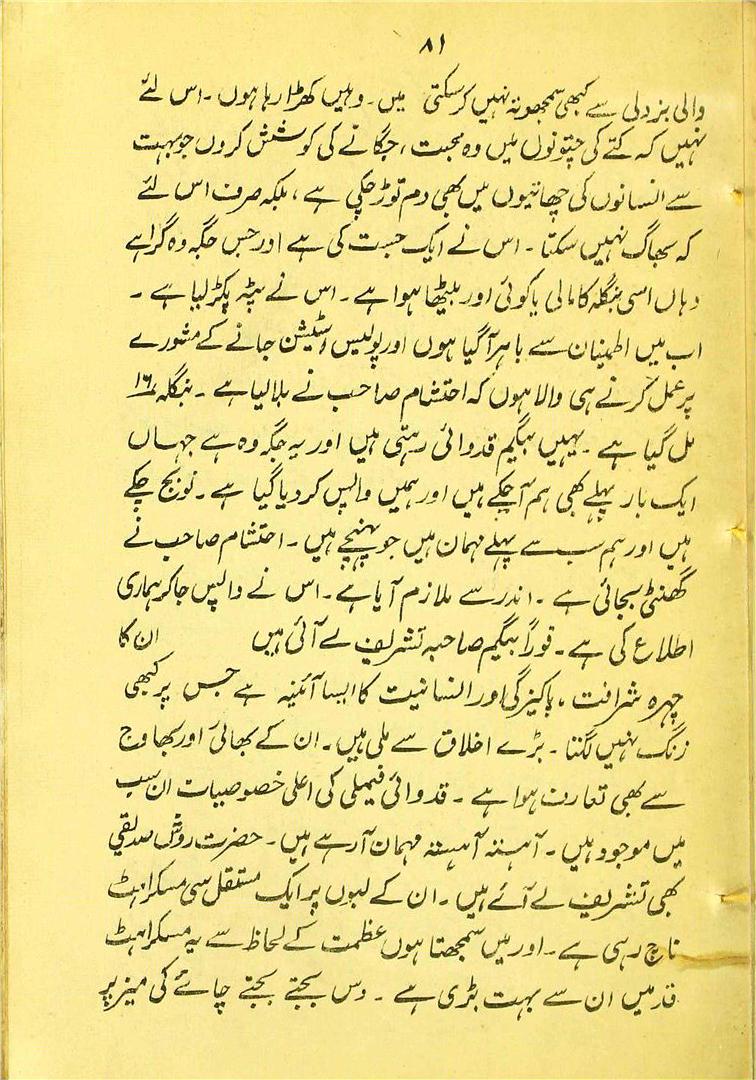 ۸۱
والی بزدلی سے کبھی سمجھوتہ نہیں کرسکتی میں۔ وہیں کھڑا رہا ہوں۔ اس لئے
نہیں کہ کتے کی چتونوں میں وہ محبت، جگانے کی کوشش کروں جو بہت
سے انسانوں کی چھاتیوں میں بھی دم توڑ چکی ہے، بلکہ صرف اس لئے
کہ بھاگ نہیں سکتا۔ اس نے ایک جست کی ہے اور جس جگہ وہ گرا ہے
وہاں اسی بنگلہ کا مالی یا کوئی اور بیٹھا ہوا ہے۔ اس نے پٹہ پکڑ لیا ہے۔
اب میں اطمینان سے باہر آگیا ہوں اور پولیس اسٹیشن جانے کے مشورے
پر عمل کرنے ہی والا ہوں کہ احتشام صاحب نے بلا لیا ہے۔ بنگلہ ۱۶
مل گیا ہے۔ یہیں بیگم قدوائی رہتی ہیں اور یہ جگہ وہ ہے جہاں
ایک بار پہلے بھی ہم آچکے ہیں اور ہمیں واپس کر دیا گیا ہے۔ نو بج چکے
ہیں اور ہم سب سے پہلے مہمان ہیں جو پہنچے ہیں۔ احتشام صاحب نے
گھنٹی بجائی ہے۔ اندر سے ملازم آیا ہے۔ اس نے واپس جاکر ہماری
اطلاع کی ہے۔ فوراً بیگم صاحبہ تشریف لے آئی ہیں ان کا
چہرہ شرافت، پاکیزگی اور انسانیت کا ایسا آئینہ ہے جس پر کبھی
زنگ نہیں لگتا۔ بڑے اخلاق سے ملی ہیں۔ ان کے بھائی اور بھاوج
سے بھی تعارف ہوا ہے۔ قدوائی فیملی کی اعلیٰ خصوصیات ان سب
میں موجود ہیں۔ آہستہ آہستہ مہمان آرہے ہیں۔ حضرت روش صدیقی
بھی تشریف لے آئے ہیں۔ ان کے لبوں پر ایک مستقل سی مسکراہٹ
ناچ رہی ہے۔ اور میں سمجھتا ہوں عظمت کے لحاظ سے یہ مسکراہٹ
قد میں ان سے بہت بڑی ہے۔ دس بجتے بجتے چائے کی میز پر